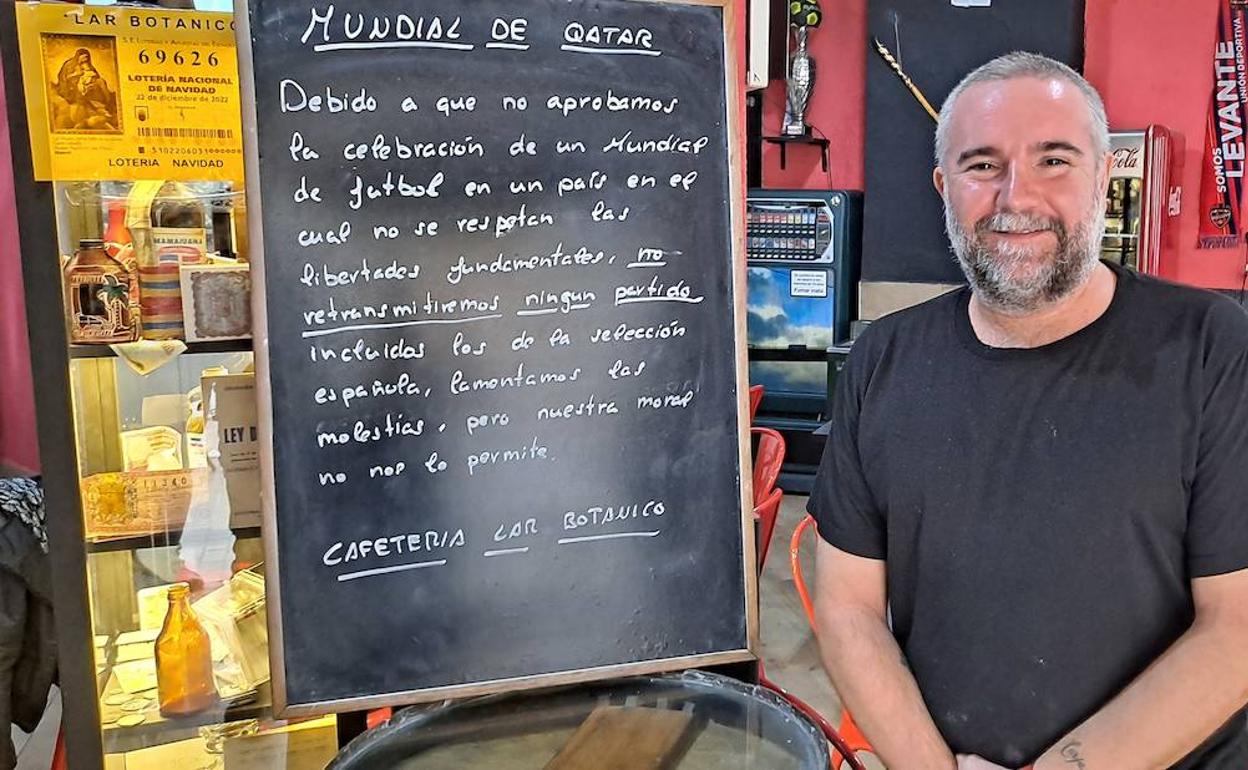 LAR BOTANICO
69626
LOTERÍA NACIONAL
DE NAVIDAD
22 de diciembre de 2022
LOTERIA NAVIDAD
MAMAJUANA
LEY
11340
MUNDIAL DE QATAR
Debido a que no aprobamos
la celebración de un Mundial
de futbol en un país en el
cual no se respetan las
libertades fundamentales, no
retransmitiremos ningun partido
incluidos los de la selección
española, lamentamos las
molestias, pero nuestra moral
no nos lo permite.
CAFETERIA LAR BOTANICO
Coca-Cola
SOMOS LEVANTE
UNIÓN DEPORTIVA